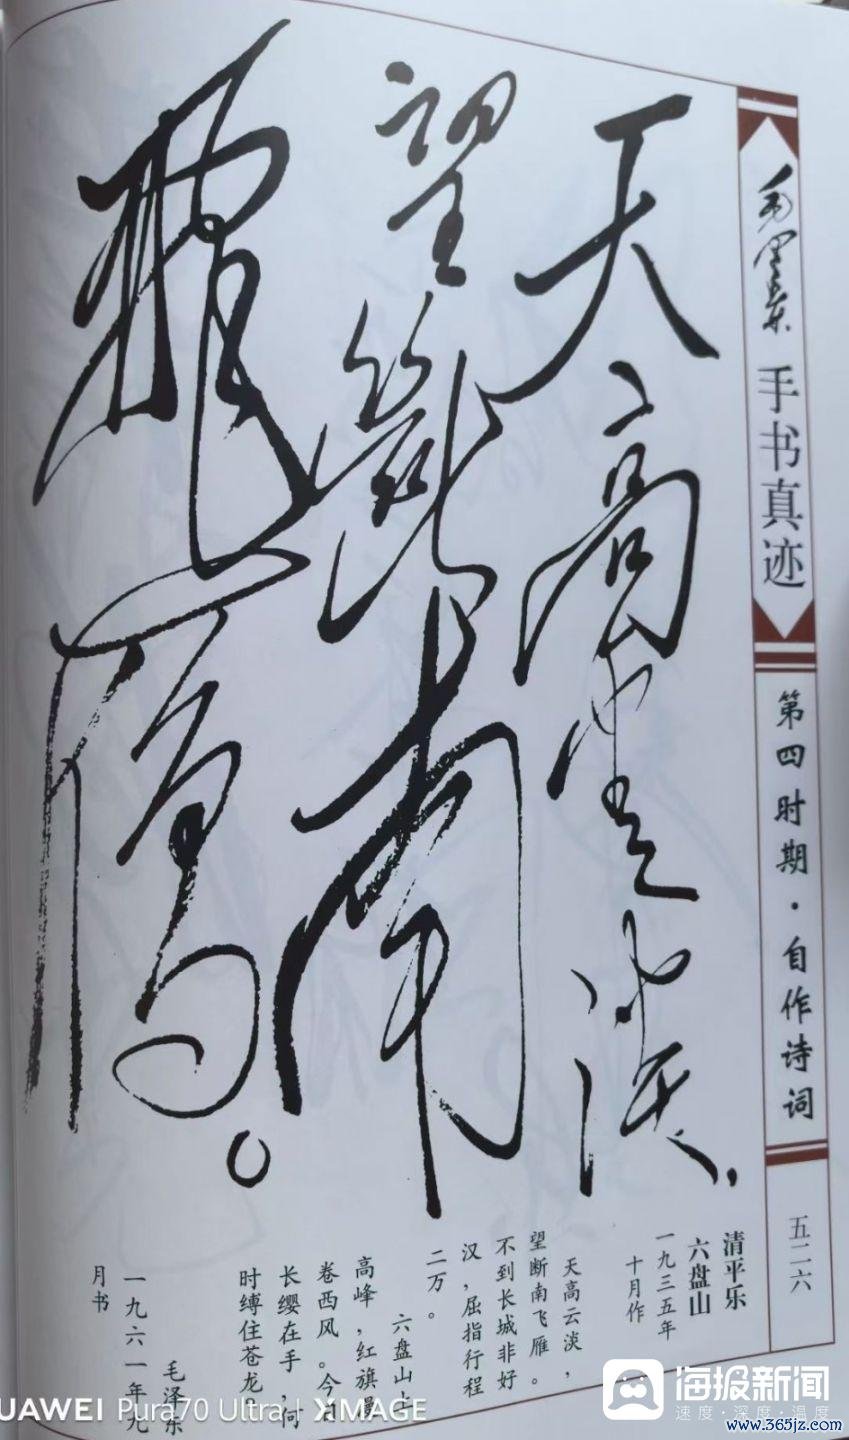 毛泽东 手书真迹
第四时期·自作诗词
五二六
天高雲淡,
望斷南
飛雁。
清平乐
六盘山
一九三五年
十月作
天高云淡,
望断南飞雁。
不到长城非好
汉,屈指行程
二万。
六盘山上
高峰,红旗漫
卷西风。今日
长缨在手,何
时缚住苍龙?
毛泽东
一九六一年九
月书
UAWEI Pura70 Ultra | XMAGE
海报新闻
速度·深度·温度
www.365jz.com